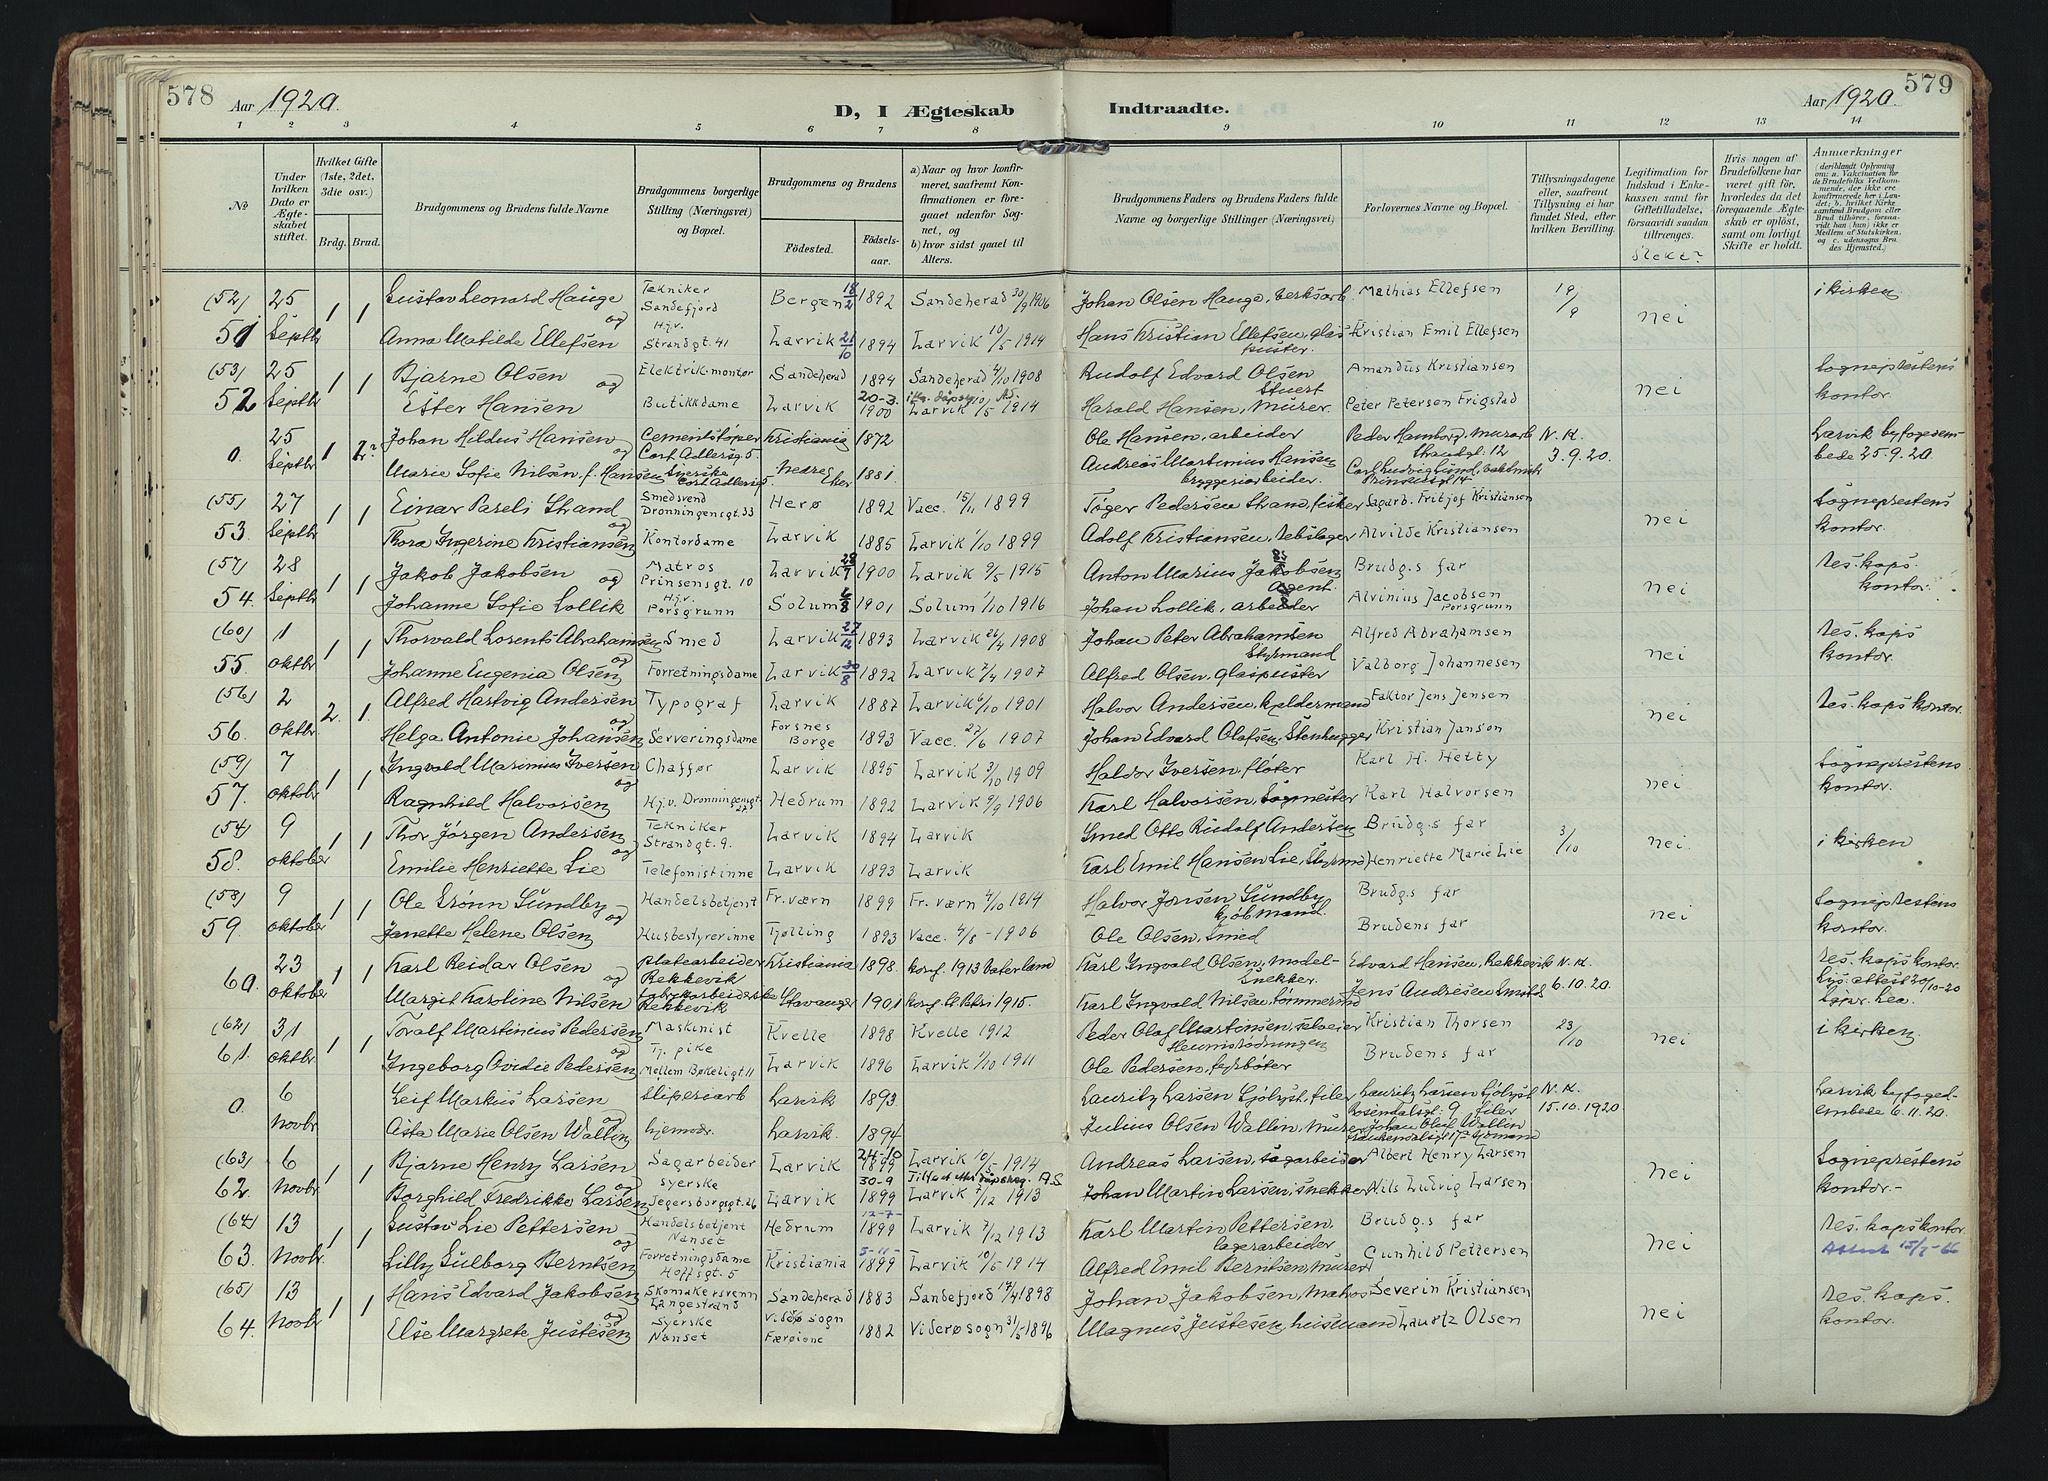 578 Aar 1920. D, I Ægteskab Indtraadte. Aar 1920. 579
1 2 3 4 5 6 7 8 9 10 11 12 13 14
No
Under hvilken Dato er Ægteskabet stiftet.
Hvilket Gifte (1ste, 2det, 3die osv.)
Brdg. Brud.
Brudgommens og Brudens fulde Navne
Brudgommens borgerlige Stilling (Næringsvei) og Bopæl.
Brudgommens og Brudens
Födested. Födselsaar.
a) Naar og hvor konfirmeret, saafremt Konfirmationen er foregaaet udenfor Sognet, og
b) hvor sidst gaaet til Alters.
Brudgommens Faders og Brudens Faders fulde Navne og borgerlige Stillinger (Næringsvei)
Forlovernes Navne og Bopæl.
Tillysningsdagene eller, saafremt Tillysning ei har fundet Sted, efter hvilken Bevilling.
Legitimation for Indskud i Enkekassen samt for Giftetilladelse, forsaavidt saadan tiltrænges.
Slekt?
Hvis nogen af Brudefolkene har været gift för, hvorledes da det foregaaende Ægteskab er oplöst, samt om lovligt Skifte er holdt.
Anmærkninger
(deriblandt Oplysning om: a. Vakcination for de Brudefolks Vedkommende, der ikke ere konfirmerede her i Landet; b. hvilket Kirkesamfund Brudgom eller Brud tilhörer, forsaavidt han (hun) ikke er Medlem af Statskirken, og c. udensogns Brudes Hjemsted.)
(52) 25 1 1 Gustav Leonard Hauge og Tekniker Sandefjord Bergen 18/2 1892 Sandeherad 30/9 1906 Johan Olsen Hauge, verksarb. Mathias Ellefsen 19/9 nei i kirken
51 Septbr Anna Matilde Ellefsen H.j.v. Strandgt. 41 Larvik 21/10 1894 Larvik 10/5 1914 Hans Kristian Ellefsen, glaspuster. Kristian Emil Ellefsen
(53) 25 1 1 Bjarne Olsen og Elektrik.montør Sandeherad 1894 Sandeherad 4/10 1908 Rudolf Edvard Olsen Stuert Amandus Kristiansen nei Sogneprestens
52 Septbr Ester Hansen Butikkdame Larvik 20-3. 1900 Larvik /5 1914 Harald Hansen, murer Peter Petersen Frigstad kontor.
25 1 2? Johan Hildus Hansen og Cementstøper Carl Adlersg 5 Kristiania 1872 Ole Hansen, arbeider Peder Hamborg, murarb Strandgt. 12 N.K. Larvik byfogedem-
0. Septbr Marie Sofie Nilsen, f. Hansen Syerske Carl Adlersg 5. Nedre Eker 1881 Andreas Martinius Hansen bryggeriarbeider. Carl Ludvig Lund, Prinsensgt 14 3.9.20. bede 25.9.20.
(55) 27 1 1 Einar Pareli Strand og Smedsvend Dronningensgt. 33 Herø 1892 Vacc. 15/11 1899 Tøger Pedersen Strand, fisker Sagarb. Fritjof Kristiansen nei Sogneprestens
53. Septbr Thora Ingerine Kristiansen Kontordame Larvik 1885 Larvik 1/10 1899 Adolf Kristiansen, rebslager Alvilde Kristiansen kontor.
(57) 28 1 1 Jakob Jakobsen og Matros Prinsensgt. 10 Larvik 28/7 1900 Larvik 9/5 1915 Anton Marius Jakobsen Agent. Brudg.s far nei res. kaps.
54. Septbr Johanne Sofie Lollik H.j.v. Porsgrunn Solum 6/8 1901 Solum 1/10 1916 Johan Lollik, arbeider Alvinius Jacobsen Porsgrunn kontor.
(60) 1 1 1 Thorvald Lorents Abrahamsen og Smed Larvik 27/12 1893 Larvik 26/4 1908 Johan Peter Abrahamsen Styrmand Alfred Abrahamsen nei res. kaps
55. oktbr Johanne Eugenia Olsen Forretningsdame Larvik 30/8 1892 Larvik 7/4 1907 Alfred Olsen, glaspuster Valborg Johannesen kontor.
(56) 2 2. 1. Alfred Hartvig Andersen og Typograf Larvik 1887 Larvik 6/10 1901 Halvor Andersen, kjeldermand Faktor Jens Jensen nei res. kaps kontor.
56. oktbr. Helga Antonie Johansen Serveringsdame Forsnes Borge 1893 Vacc. 27/6 1907 Johan Edvard Olafsen, Stenhugger Kristian Janson
(59) 7 1 1 Ingvald Marinius Iversen og Chaffør Larvik 1895 Larvik 3/10 1909 Haldor Iversen, fløter Karl H. Hetty nei Sogneprestens
57. oktobr Ragnhild Halvorsen H.j.v. Dronningensgt. 27. Hedrum 1892 Larvik 9/9 1906 Karl Halvorsen, Sagmester Karl Halvorsen kontor.
(54) 9 1 1 Thor Jörgen Andersen og Tekniker Strandgt. 9. Larvik 1894 Larvik Smed Otto Rudolf Andersen Brudg.s far 3/10 nei. i kirken
58. oktober Emilie Henriette Lie Telefonistinne Larvik 1893 Larvik Karl Emil Hansen Lie, Styrmd Henriette Marie Lie
(58) 9 1 1 Ole Grönn Sundby og Handelsbetjent Fr. værn 1899 Fr. værn 4/10 1914 Halvor Jonsen Sundby kjøbmand. Brudg.s far nei Sogneprestens
59. oktober Janette Helene Olsen Husbestyrerinne Tjølling 1893 Vacc. 4/8 - 1906 Ole Olsen, Smed Brudens far kontor.
23 1 1 Karl Reidar Olsen og platearbeider Rekkevik Kristiania 1898. konf. 1913 Vaterland Karl Ingvald Olsen, modelsnekker. Edvard Hansen, Rekkevik N.K. res. kaps kontor
60. oktober Margit Karoline Nilsen fabrikarbeiderske Rekkevik Stavanger 1901 konf. St. Petri 1915. Karl Ingvald Nilsen, tömmermd Jens Andresen 6.10.20. Lys. attest 20/10-20
(62) 31 1 1 Toralf Martinius Pedersen og Maskinist Kvelle 1898 Kvelle 1912 Peder Olaf Martinsen, selveier Kristian Thorsen 23/10 nei i kirken
61. oktbr. Ingeborg Ovidie Pedersen Tj. pike Mellem Bøkeligt 11 Larvik 1896 Larvik 1/10 1911 Ole Pedersen, fyrbøter Brudens far
6 Leif Markus Larsen og Sliperiarb Larvik 1893 Lauritz Larsen Sjölyst, filer Lauritz Larsen Sjölyst Rosendalsgt. 9 filer N.K. Larvik byfoged-
0. Novbr. Asta Marie Olsen Wallin hjemvær. Larvik. 1894 Julius Olsen Wallin, murer Johan Olaf Wallin 15.10.1920. embede 6.11.20.
(63) 6 1 1 Bjarne Henry Larsen og Sagarbeider Larvik 24-10 1899 Larvik 10/5 - 1914 Andreas Larsen, sagarbeider Albert Henry Larsen nei Sogneprestens
62. Novbr. Borghild Fredrikke Larsen syerske Jegersborgsgt. 26 Larvik 30-9 1899 Larvik 7/12 1913 Johan Martin Larsen, snekker Nils Ludvig Larsen kontor.-
(64) 13 1 1 Gustav Lie Pettersen og Handelsbetjent Nanset Hedrum 12-7- 1899 Larvik 7/12 1913 Karl Martin Pettersen. lagerarbeider Brudg.s far nei res. kaps kontor
63. Novbr. Lilly Gulborg Berntsen Forretningsdame Hoffsgt. 5 Kristiania 5-11- 1899 Larvik 10/5 1914 Alfred Emil Berntsen, murer Gunhild Pettersen
(65) 13 1 1 Hans Edvard Jakobsen og Skomakersvenn Langestrand Sandeherad 1883 Sandefjord 17/4 1898 Johan Jakobsen, matros Severin Kristiansen nei res. kaps.
64. Novbr Else Margrete Justesen Syerske Nanset Viderø sogn Færøione 1882 Viderø sogn 31/5 1896 Magnus Justesen, husmand Lauritz Olsen kontor.